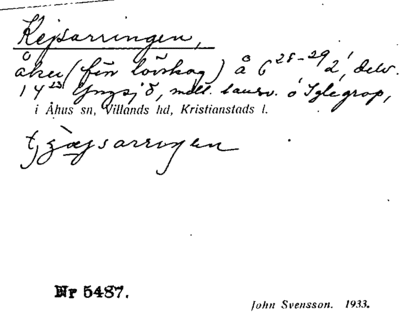 Kejsarringen,
åker (fin lövskog) å 6²⁸⁻²⁹ 2', delv.
14²³ Yngsjö, mell. lansv. o Iglegrop,
i Åhus sn, Villands hd, Kristianstads l.
Nr 5487.
John Svensson. 1933.